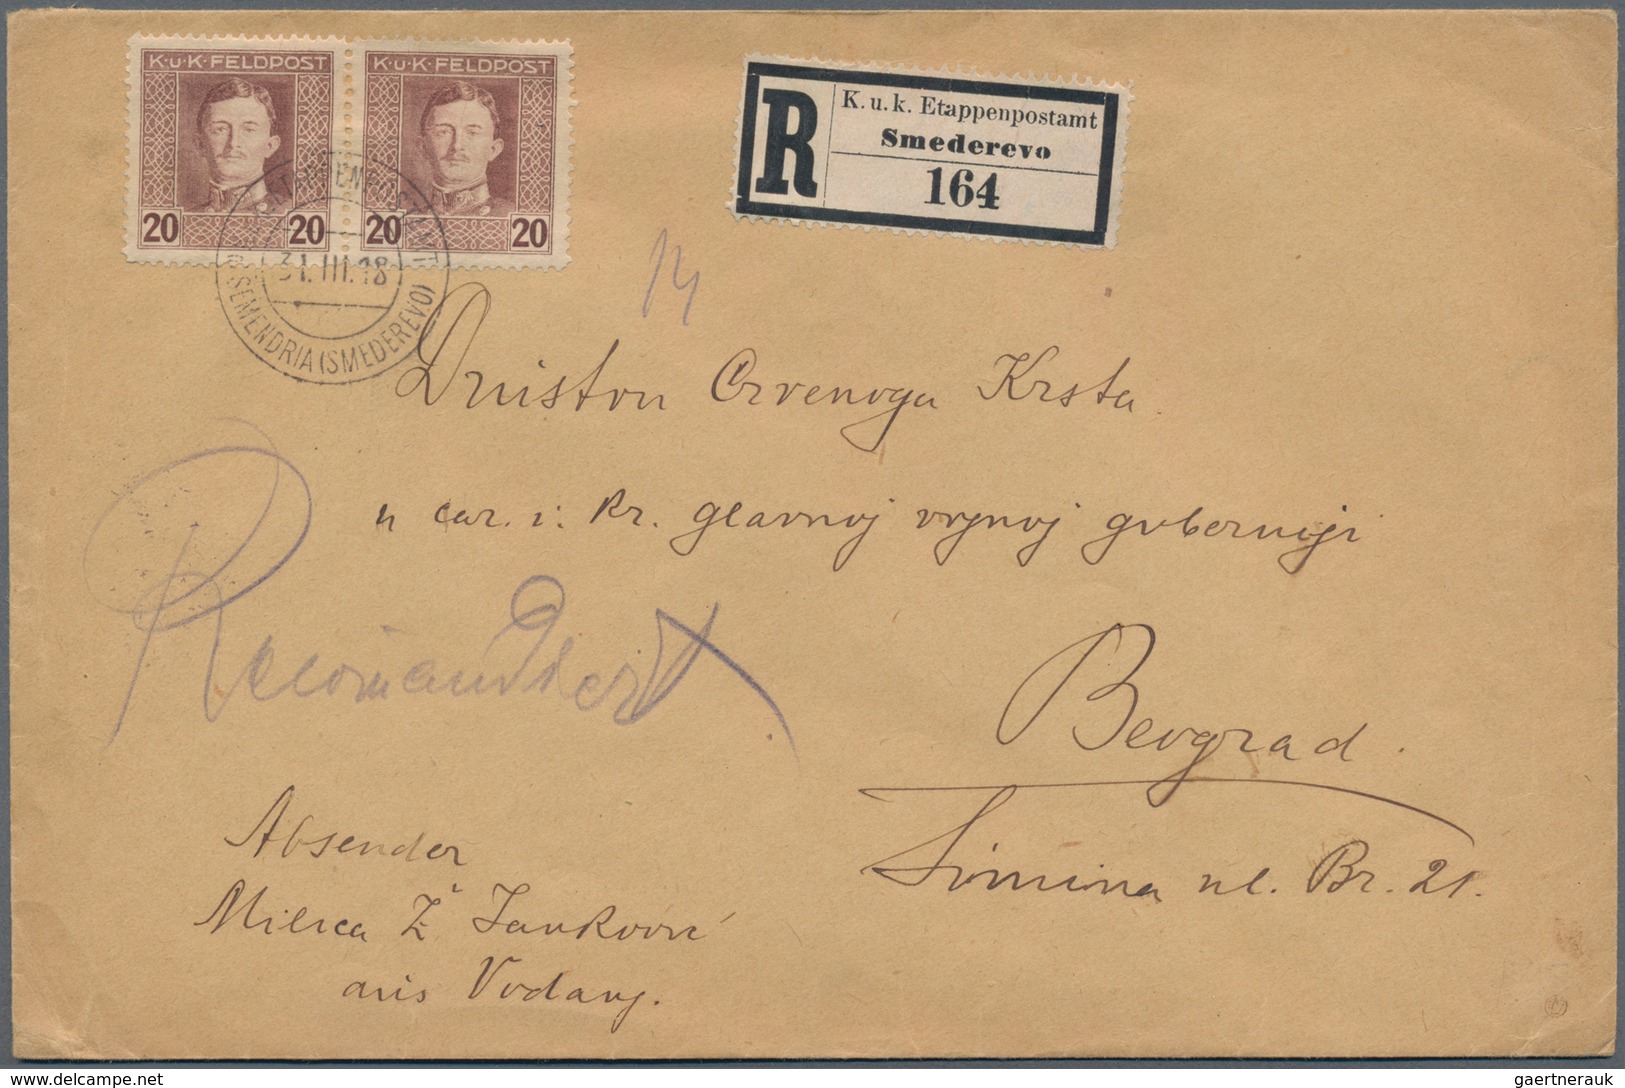 K·u·K·FELDPOST K·u·K·FELDPOST
20 20 20 20
31.III.18
SEMENDRIA (SMEDEREVO)
R
K. u. k. Etappenpostamt
Smederevo
164
14
Društvu Crvenoga Krsta
u car. i. kr. glavnoj vojnoj guberniji
Beograd.
Simina ul. Br. 21.
Recomandiert
Absender
Milica Ž Janković
aus Vodanj.
delcampe.net
gaertnerauk